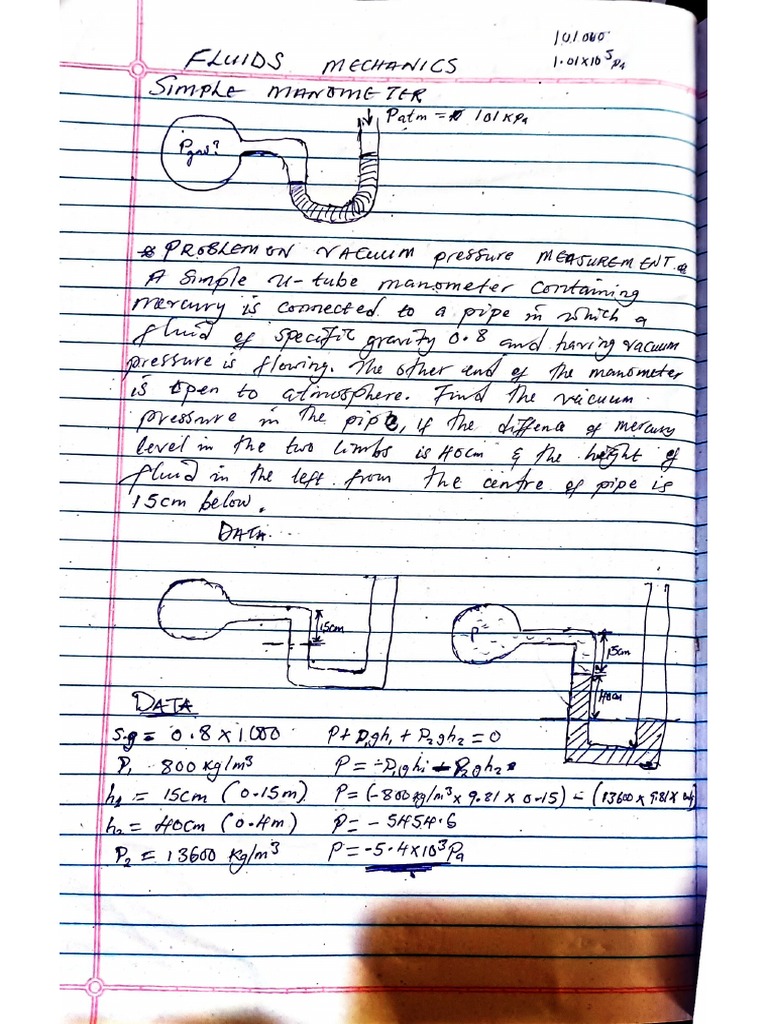 101000
1.01x10⁵ Pa
FLUIDS MECHANICS
SIMPLE MANOMETER
Patm = 101KPa
Pgas?
PROBLEM ON VACUUM pressure MEASUREMENT.
A Simple u-tube manometer containing
mercury is connected to a pipe in which a
fluid of specific gravity 0.8 and having vacuum
pressure is flowing. The other end of the manometer
is open to atmosphere. Find the vacuum
pressure in the pipe, if the diffence of mercury
level in the two limbs is 40cm & the height of
fluid in the left from the centre of pipe is
15cm below.
DATA...
15cm
P
15cm
40cm
DATA
S.g = 0.8 x 1000 P + P₁gh₁ + P₂gh₂ = 0
P₁ 800 kg/m³ P = -P₁gh₁ - P₂gh₂
h₁ = 15cm (0.15m) P = (-800kg/m³ x 9.81 x 0.15) - (13600 x 9.81 x
h₂ = 40cm (0.4m) P = - 5454.6
P₂ = 13600 kg/m³ P = -5.4x10³Pa